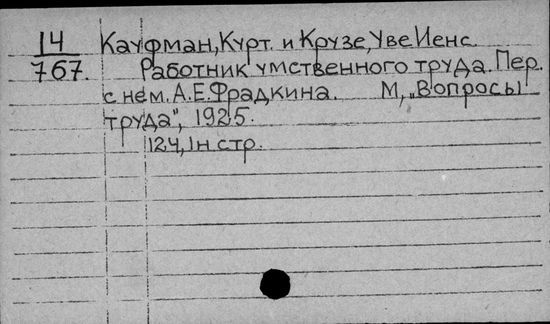 14 Кауфман, Курт. и Крузе, Уве Иенс.
767. Работник умственного труда. Пер.
с нем. А.Е.Фрадкина. М, „Вопросы
труда", 1925.
124, 1н стр.